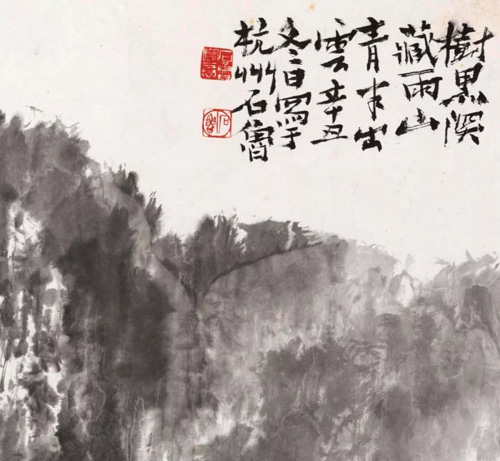 樹黑溪
藏雨山
青半出
雲辛丑
冬日寫于
杭州石魯
石魯